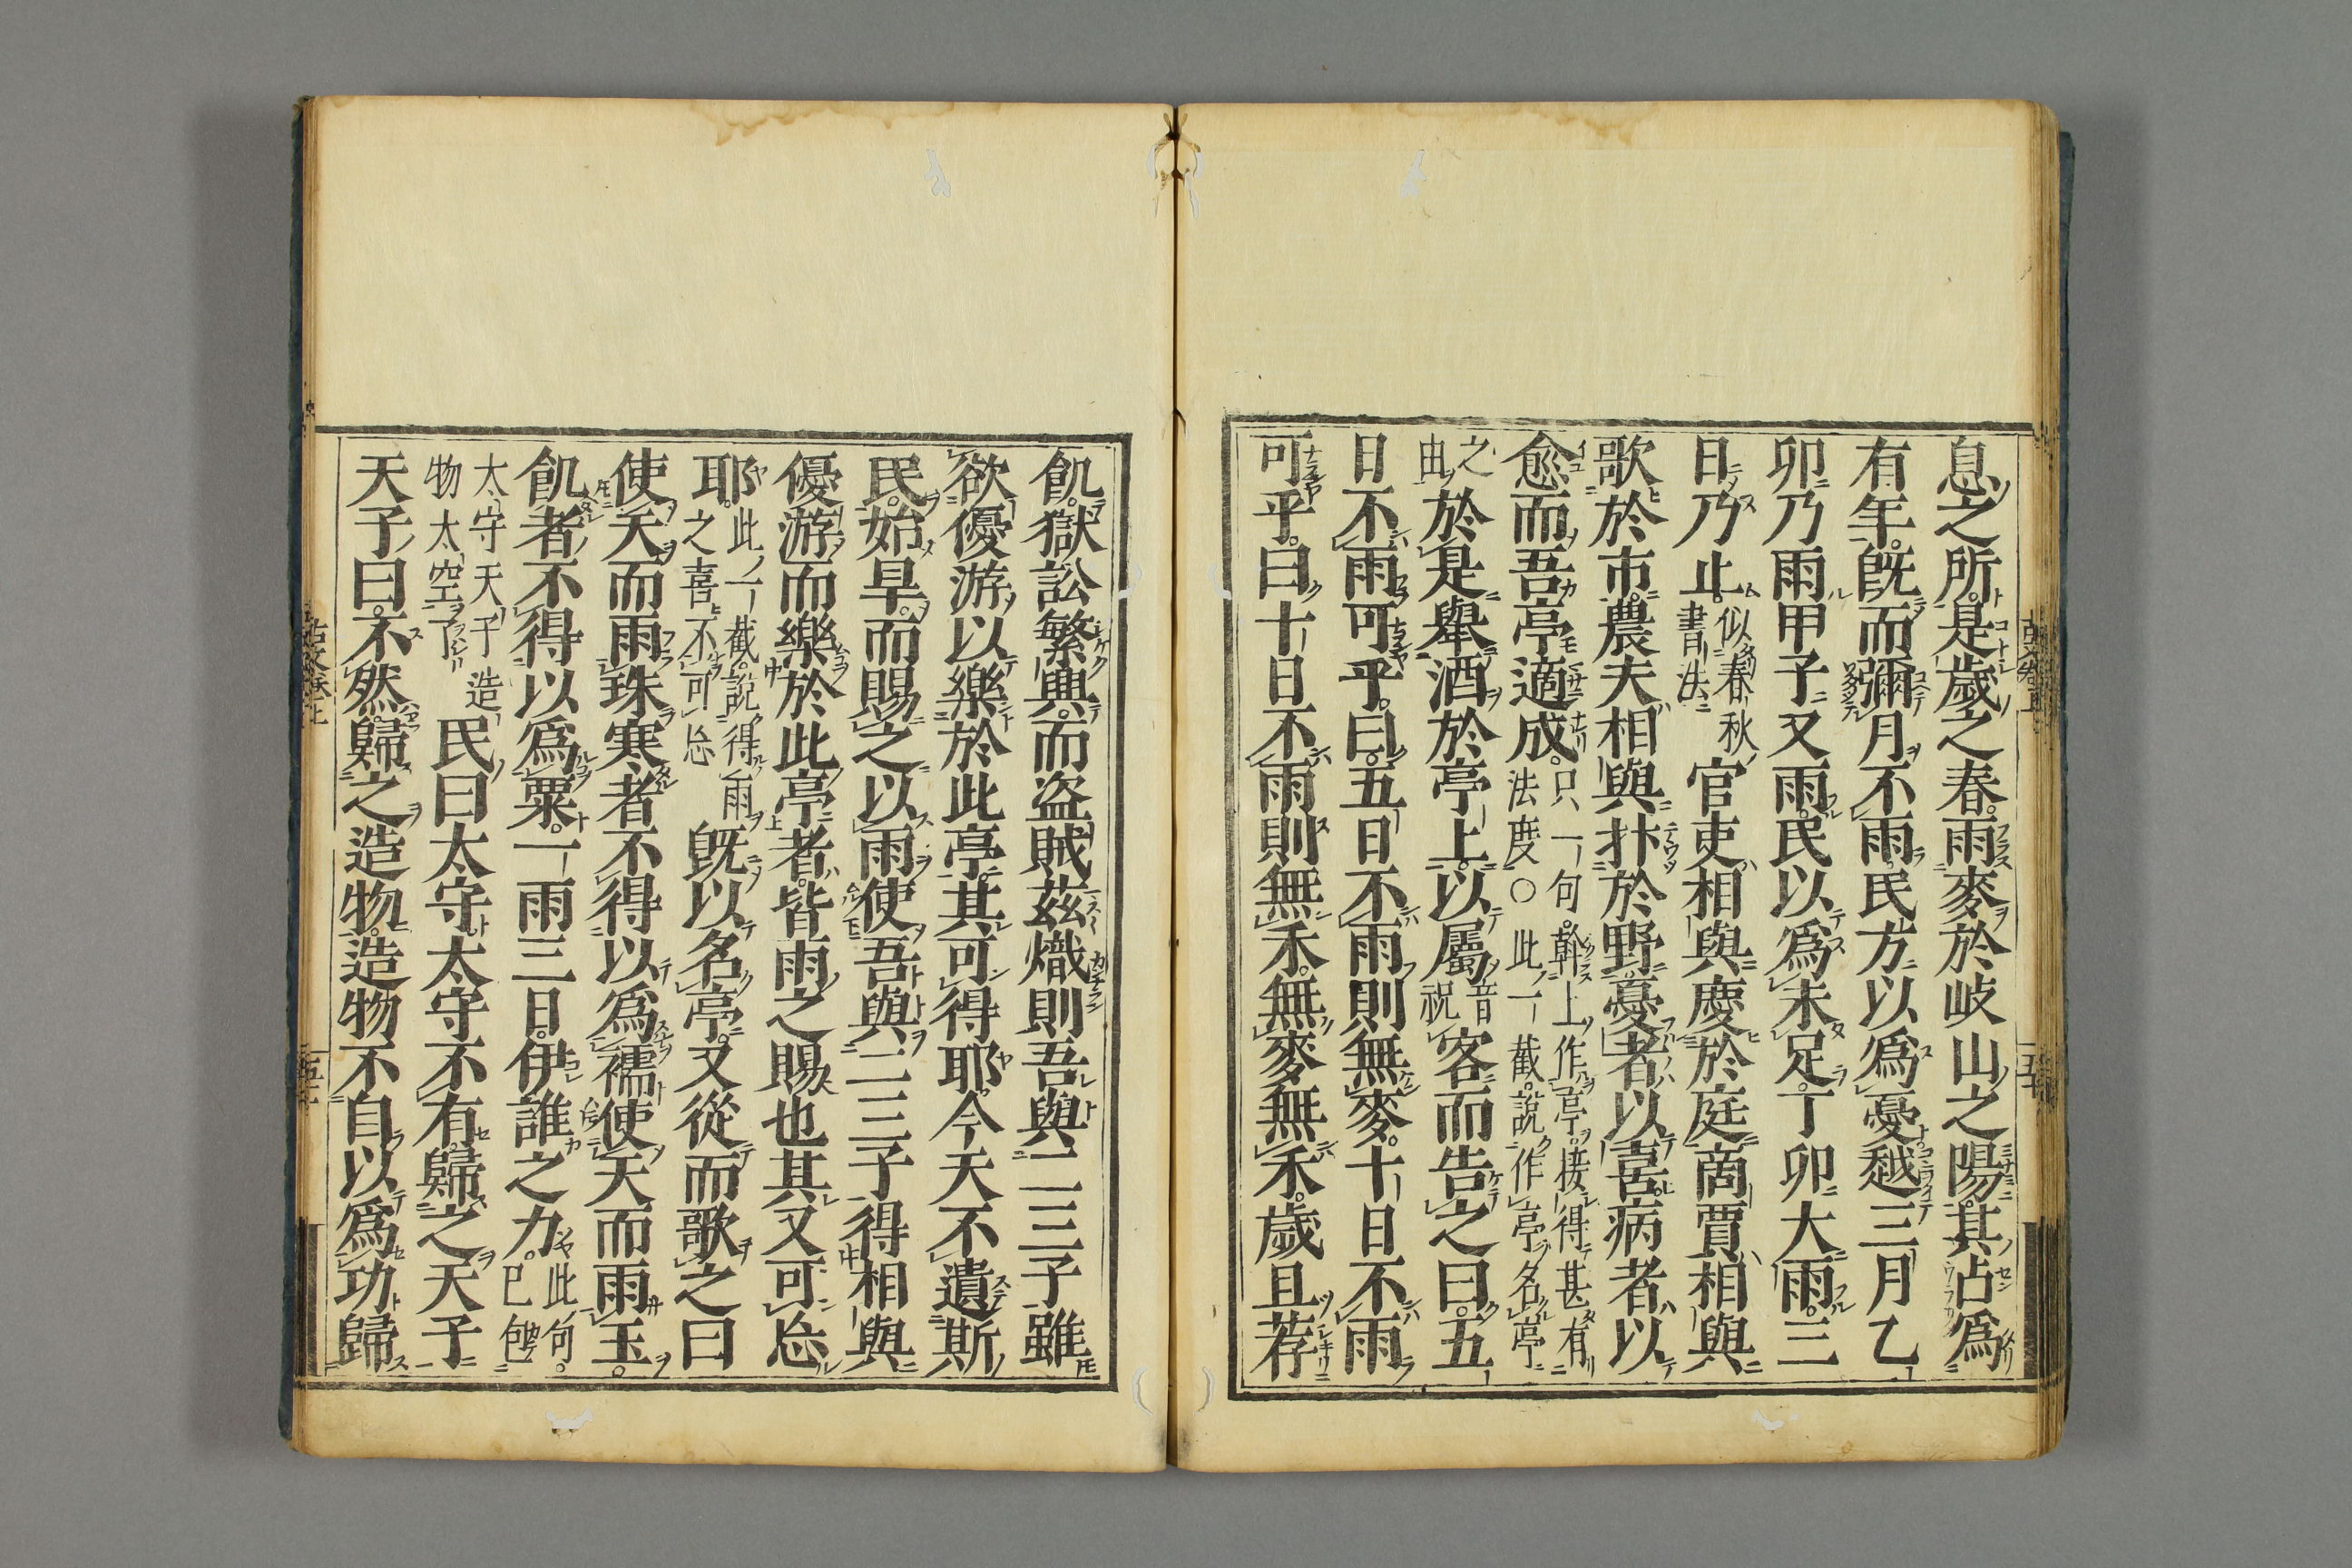 息之所是歲之春雨麥於岐山之陽其占爲
有年既而彌月不雨民方以爲憂越三月乙
卯乃雨甲子又雨民以爲未足丁卯大雨三
日乃止似春秋書法官吏相與慶於庭商賈相與
歌於市農夫相與抃於野憂者以喜病者以
愈而吾亭適成只一句幹上作亭接得甚有法度○此一截說作亭名亭
之由於是舉酒於亭上以屬音祝客而告之曰五
日不雨可乎曰五日不雨則無麥十日不雨
可乎曰十日不雨則無禾無麥無禾歲且荐
飢獄訟繁興而盗賊茲熾則吾與二三子雖
欲優游以樂於此亭其可得耶今天不遺斯
民始旱而賜之以雨使吾與二三子得相與
優游而樂於此亭者皆雨之賜也其又可忘
耶此一截說得雨之喜不可忘既以名亭又從而歌之曰
使天而雨珠寒者不得以爲襦使天而雨玉
飢者不得以爲粟一雨三日伊誰之力此句已包
太守天子造物太空了民曰太守太守不有歸之天子
天子曰不然歸之造物造物不自以爲功歸